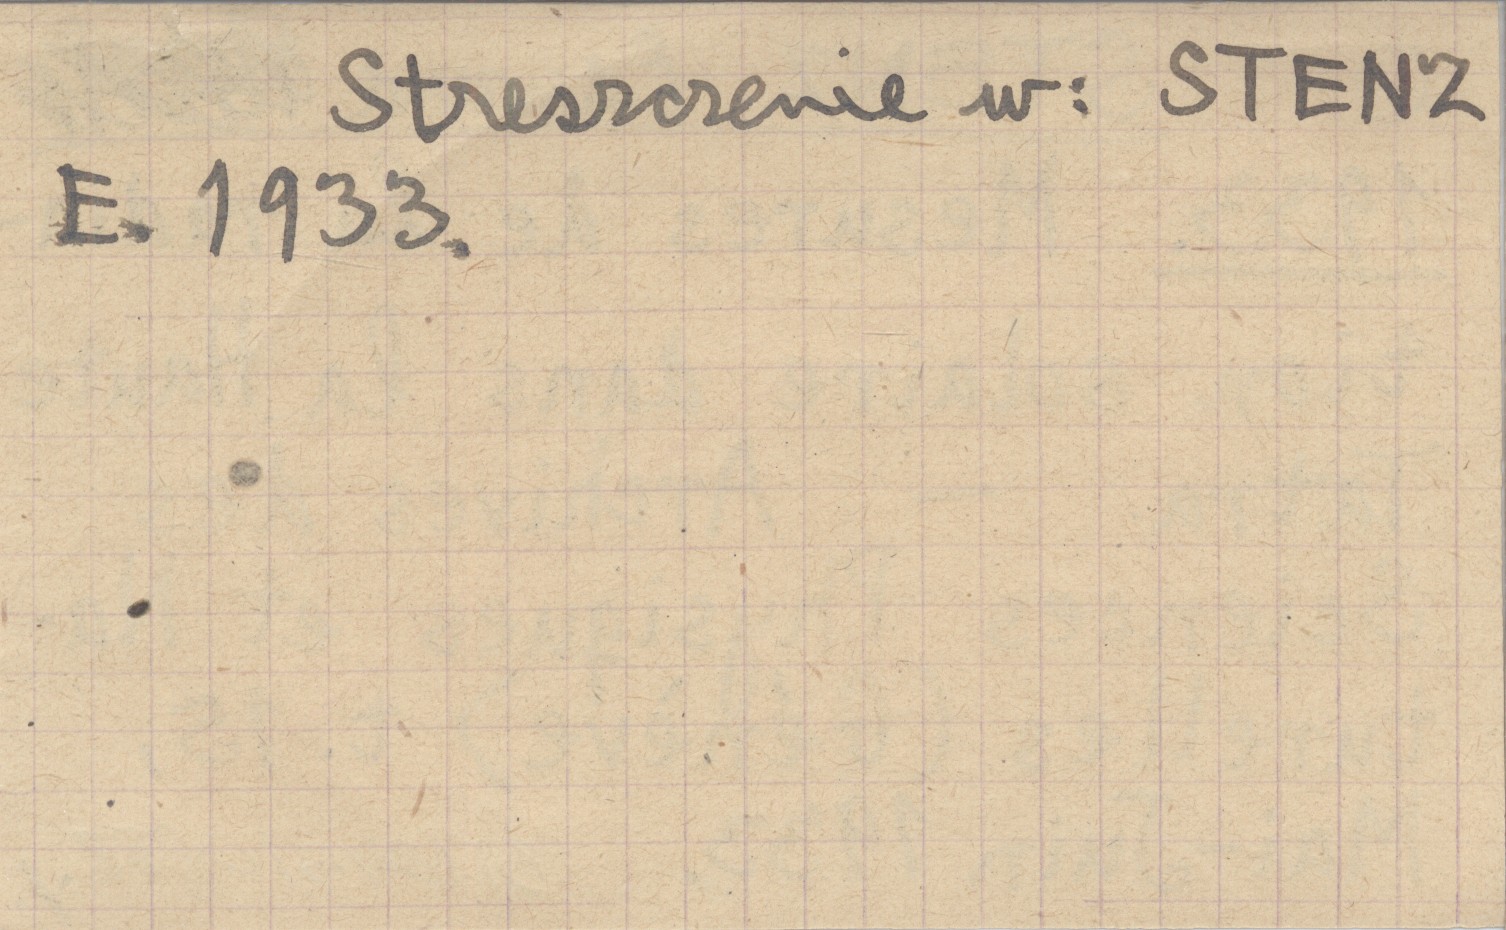 Streszczenie w: STENZ
E. 1933.